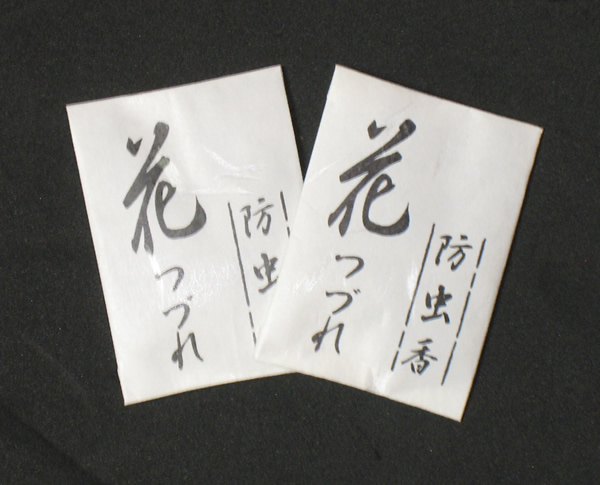 花つづれ
防虫
花つづれ
防虫香